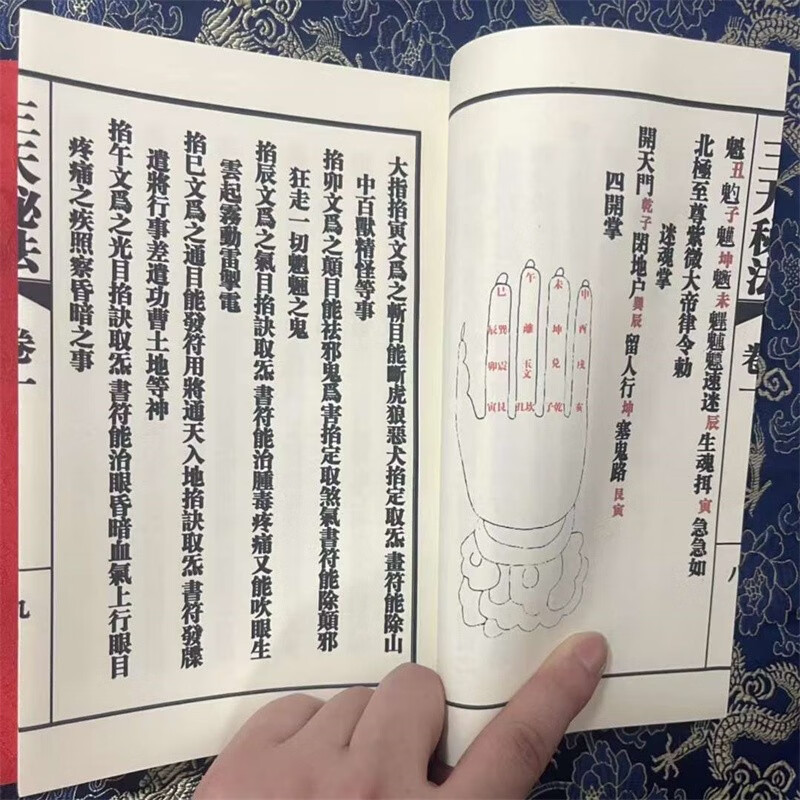 三天秘法 卷一 八
魁丑 子 坤 未 速迷辰生魂 寅急急如
北極至尊紫微大帝律令勅
迷魂掌
開天門乾子閉地户巽辰留人行坤塞鬼路艮寅
四開掌
申 未 午 巳
酉 坤 離 巽辰
戌 兌 玉文 震卯
亥 乾子 坎丑 艮寅
大指掐寅文爲之斬目能斷虎狼惡犬掐定取炁書符能除山
中百獸精怪等事
掐卯文爲之顛目能祛邪鬼爲害掐定取煞氣書符能除顛邪
狂走一切魍魎之鬼
掐辰文爲之氣目掐訣取炁書符能治腫毒疼痛又能吹眼生
雲起霧動雷擊電
掐巳文爲之通目能發符用將通天入地掐訣取炁書符發牒
遣將行事差遣功曹土地等神
掐午文爲之光目掐訣取炁書符能治眼昏暗血氣上行眼目
疼痛之疾照察昏暗之事
三天秘法 卷一 九